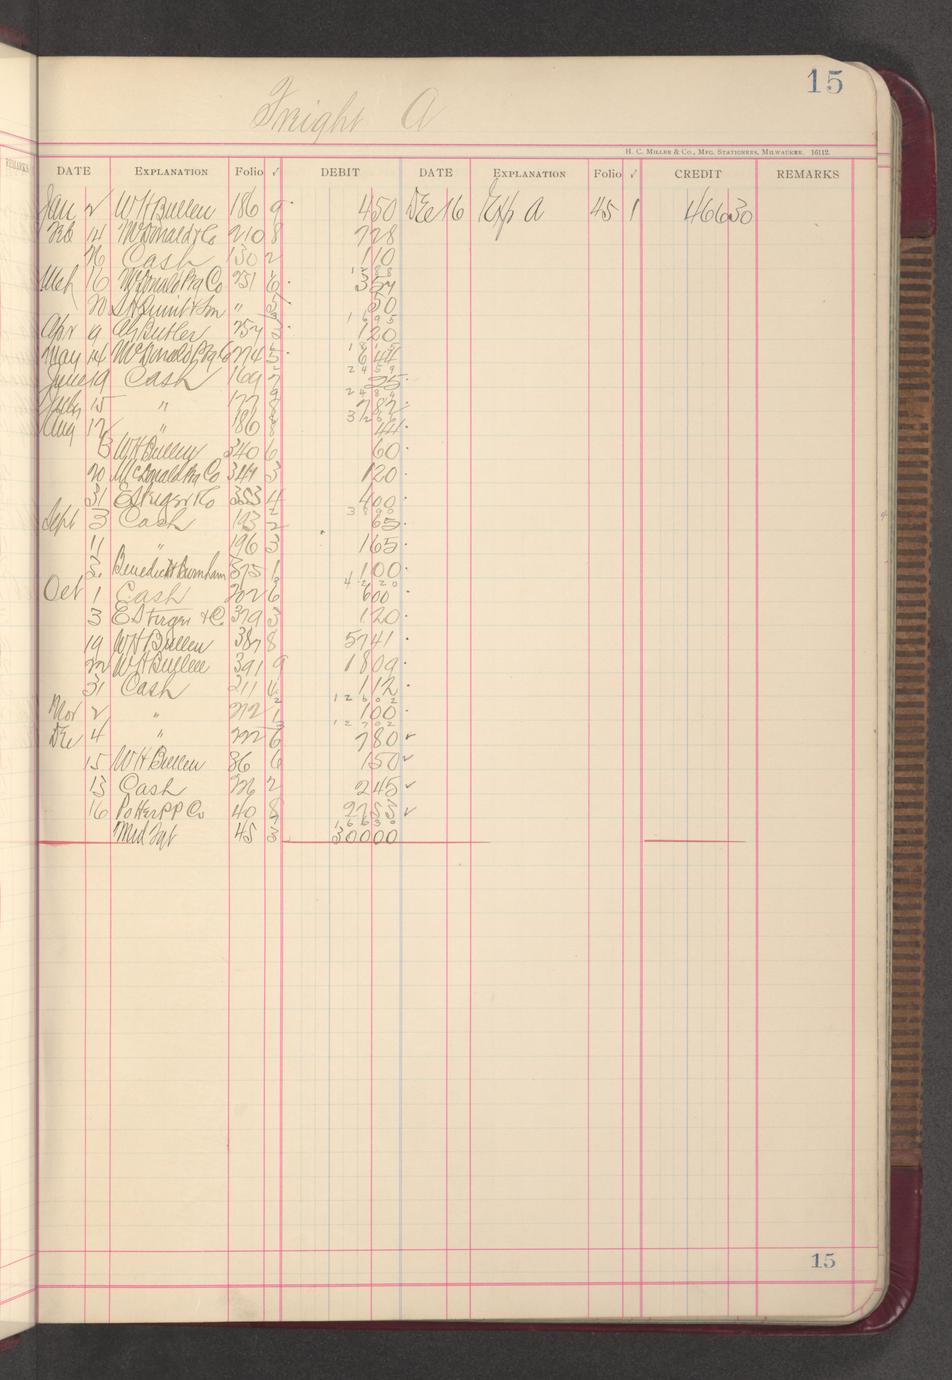 15
Freight A
H. C. Miller & Co., Mfg. Stationers, Milwaukee. 16112.
REMARKS
DATE Explanation Folio √ DEBIT DATE Explanation Folio √ CREDIT REMARKS
Jan 2 W H Bullen 186 9 450 Dec 16 Exp A 45 1 46630
Feb 14 McDonald & Co 210 8 728
26 Cash 130 2 110
1288
Mch 16 McDonald Pkg Co 231 6 357
20 " 5 50
1695
Apr 9 Butler 257 3 120
1815
May 14 McDonald Pkg Co 274 5 644
2459
June 19 Cash 169 7 25
2484
July 15 " 177 8 782
Aug 12 " 186 8 44
3 W H Bullen 340 6 60
20 McDonald Pkg Co 344 3 120
31 & Co 353 4 400
3890
Sept 3 Cash 193 2 65
11 " 196 3 165
Benedict & Burnham 375 1 100
4220
Oct 1 Cash 202 6 600
3 & Co 379 3 120
19 W H Bullen 387 8 5741
22 W H Bullen 391 9 1809
31 Cash 211 6 112
12602
Nov 2 " 212 1 100
12702
Dec 4 " 222 6 780
15 W H Bullen 36 6 150
13 Cash 226 2 245
16 Potter P P Co 40 8 2753
16630
Mrd 45 3 30000
15